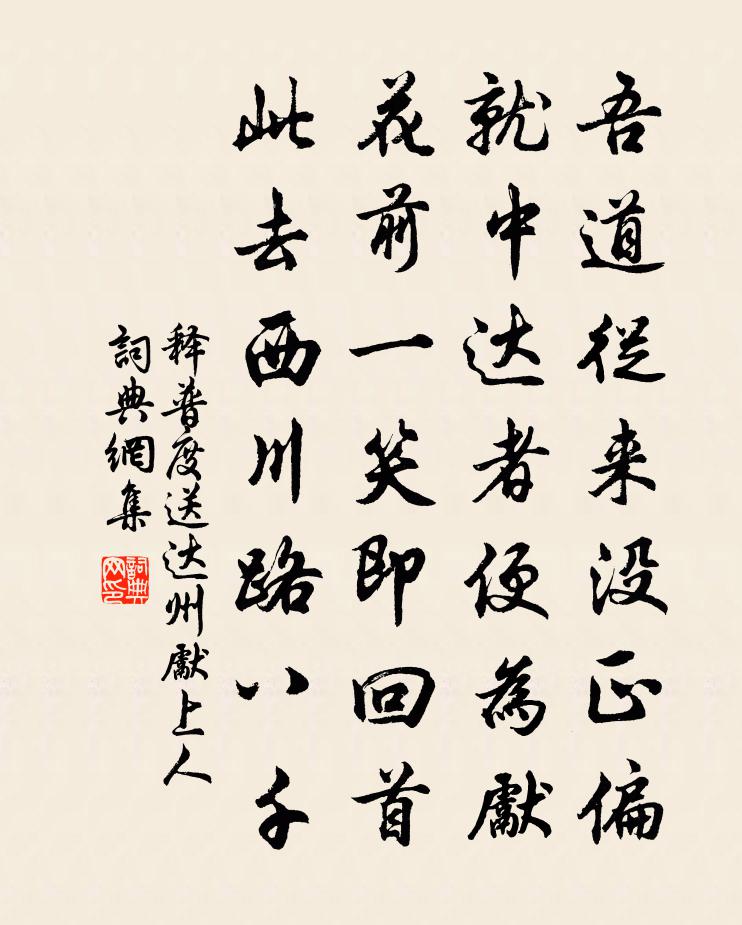 吾道從来没正偏
就中达者便為獻
花前一笑即回首
此去西川路八千
释普度送达州獻上人
詞典網集
詞典网印